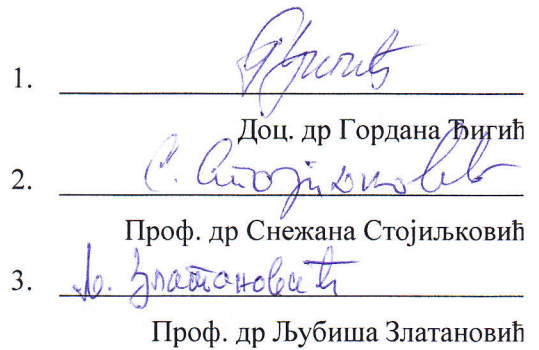 1.
Доц. др Гордана Ђигић
2. С. Стојиљковић
Проф. др Снежана Стојиљковић
3. Љ. Златановић
Проф. др Љубиша Златановић